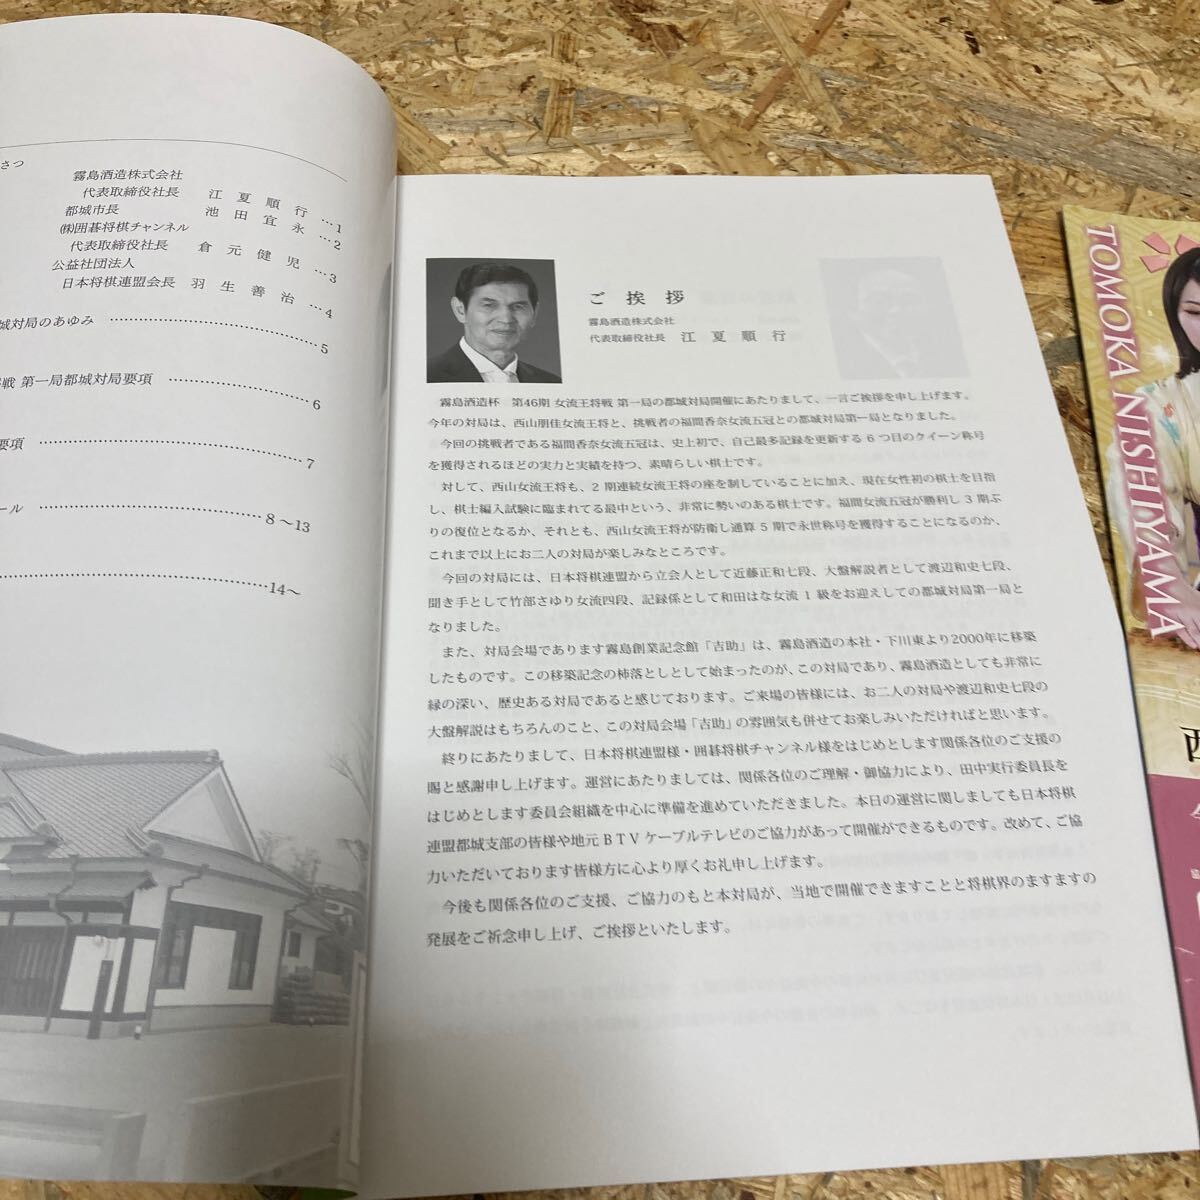 さつ
霧島酒造株式会社
代表取締役社長 江夏順行 …1
都城市長 池田宜永 …2
㈱囲碁将棋チャンネル
代表取締役社長 倉元健児 …3
公益社団法人
日本将棋連盟会長 羽生善治 …4
城対局のあゆみ …………………………5
戦 第一局都城対局要項 ………………6
要項 ……………………………………7
ール ……………………………8～13
……………………………………14～
ご挨拶
霧島酒造株式会社
代表取締役社長 江夏順行
霧島酒造杯 第46期 女流王将戦 第一局の都城対局開催にあたりまして、一言ご挨拶を申し上げます。
今年の対局は、西山朋佳女流王将と、挑戦者の福間香奈女流五冠との都城対局第一局となりました。
今回の挑戦者である福間香奈女流五冠は、史上初で、自己最多記録を更新する 6 つ目のクイーン称号
を獲得されるほどの実力と実績を持つ、素晴らしい棋士です。
対して、西山女流王将も、2 期連続女流王将の座を制していることに加え、現在女性初の棋士を目指
し、棋士編入試験に臨まれてる最中という、非常に勢いのある棋士です。福間女流五冠が勝利し 3 期ぶ
りの復位となるか、それとも、西山女流王将が防衛し通算 5 期で永世称号を獲得することになるのか、
これまで以上にお二人の対局が楽しみなところです。
今回の対局には、日本将棋連盟から立会人として近藤正和七段、大盤解説者として渡辺和史七段、
聞き手として竹部さゆり女流四段、記録係として和田はな女流 1 級をお迎えしての都城対局第一局と
なりました。
また、対局会場であります霧島創業記念館「吉助」は、霧島酒造の本社・下川東より2000年に移築
したものです。この移築記念の柿落としとして始まったのが、この対局であり、霧島酒造としても非常に
縁の深い、歴史ある対局であると感じております。ご来場の皆様には、お二人の対局や渡辺和史七段の
大盤解説はもちろんのこと、この対局会場「吉助」の雰囲気も併せてお楽しみいただければと思います。
終りにあたりまして、日本将棋連盟様・囲碁将棋チャンネル様をはじめとします関係各位のご支援の
賜と感謝申し上げます。運営にあたりましては、関係各位のご理解・御協力により、田中実行委員長を
はじめとします委員会組織を中心に準備を進めていただきました。本日の運営に関しましても日本将棋
連盟都城支部の皆様や地元 BTV ケーブルテレビのご協力があって開催ができるものです。改めて、ご協
力いただいております皆様方に心より厚くお礼申し上げます。
今後も関係各位のご支援、ご協力のもと本対局が、当地で開催できますことと将棋界のますますの
発展をご祈念申し上げ、ご挨拶といたします。
TOMOKA NISHIYAMA
西